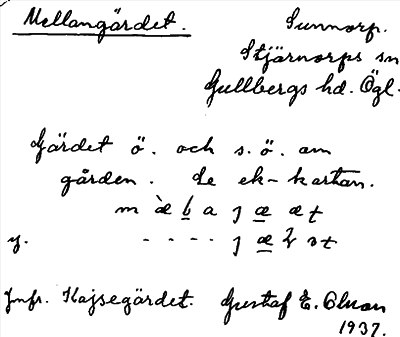 Mellangärdet. Sunnorp.
Stjärnorps sn
Gullbergs hd. Ögl.
Gärdet ö. och s.ö. om
gården. Se ek-kartan.
y.
Jmfr. Kajsegärdet. Gustaf E. Olson
1937.